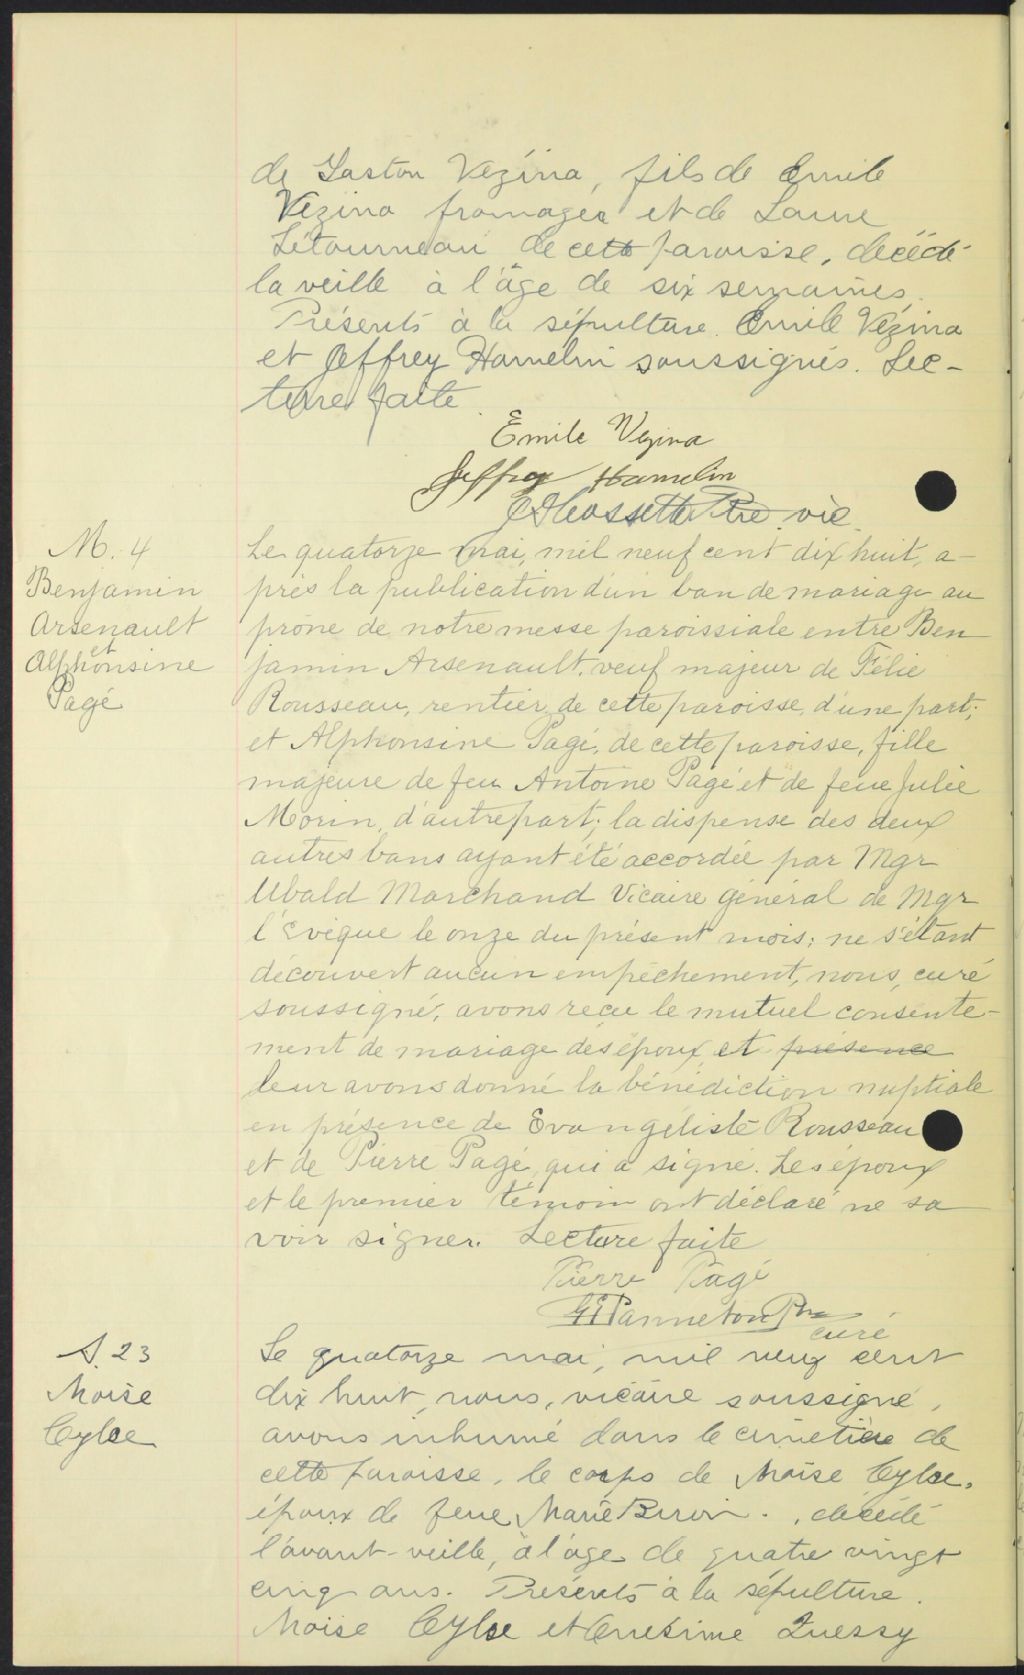 de Gaston Vézina, fils de Emile
Vézina fromager et de Laure
Létourneau de cette paroisse, décédé
la veille à l'âge de six semaines.
Présents à la sépulture. Emile Vézina
et Jeffrey Hamelin soussignés. Lec-
ture faite.
Emile Vezina
Jeffrey Hamelin
Ptre vic.
M. 4
Benjamin
Arsenault
et
Alphonsine
Pagé
Le quatorze mai, mil neuf cent dix huit, a-
près la publication d'un ban de mariage au
prône de notre messe paroissiale entre Ben
jamin Arsenault, veuf majeur de Félie
Rousseau, rentier, de cette paroisse, d'une part;
et Alphonsine Pagé, de cette paroisse, fille
majeure de feu Antoine Pagé et de feue Julie
Morin, d'autre part; la dispense des deux
autres bans ayant été accordée par Mgr
Ubald Marchand Vicaire général de Mgr
l'Evêque le onze du présent mois; ne s'étant
découvert aucun empêchement, nous, curé
soussigné, avons reçu le mutuel consente-
ment de mariage des époux, et présence
leur avons donné la bénédiction nuptiale
en présence de Evangéliste Rousseau
et de Pierre Pagé, qui a signé. Les époux
et le premier témoin ont déclaré ne sa
voir signer. Lecture faite
Pierre Pagé
Panneton Ptre
curé
S. 23
Moïse
Cylse
Le quatorze mai, mil neuf cent
dix huit, nous, vicaire soussigné,
avons inhumé dans le cimetière de
cette paroisse, le corps de Moïse Cylse,
époux de feue Marie Biron., décédé
l'avant-veille, à l'âge de quatre vingt
cinq ans. Présents à la sépulture.
Moïse Cylse et Onésime Quessy